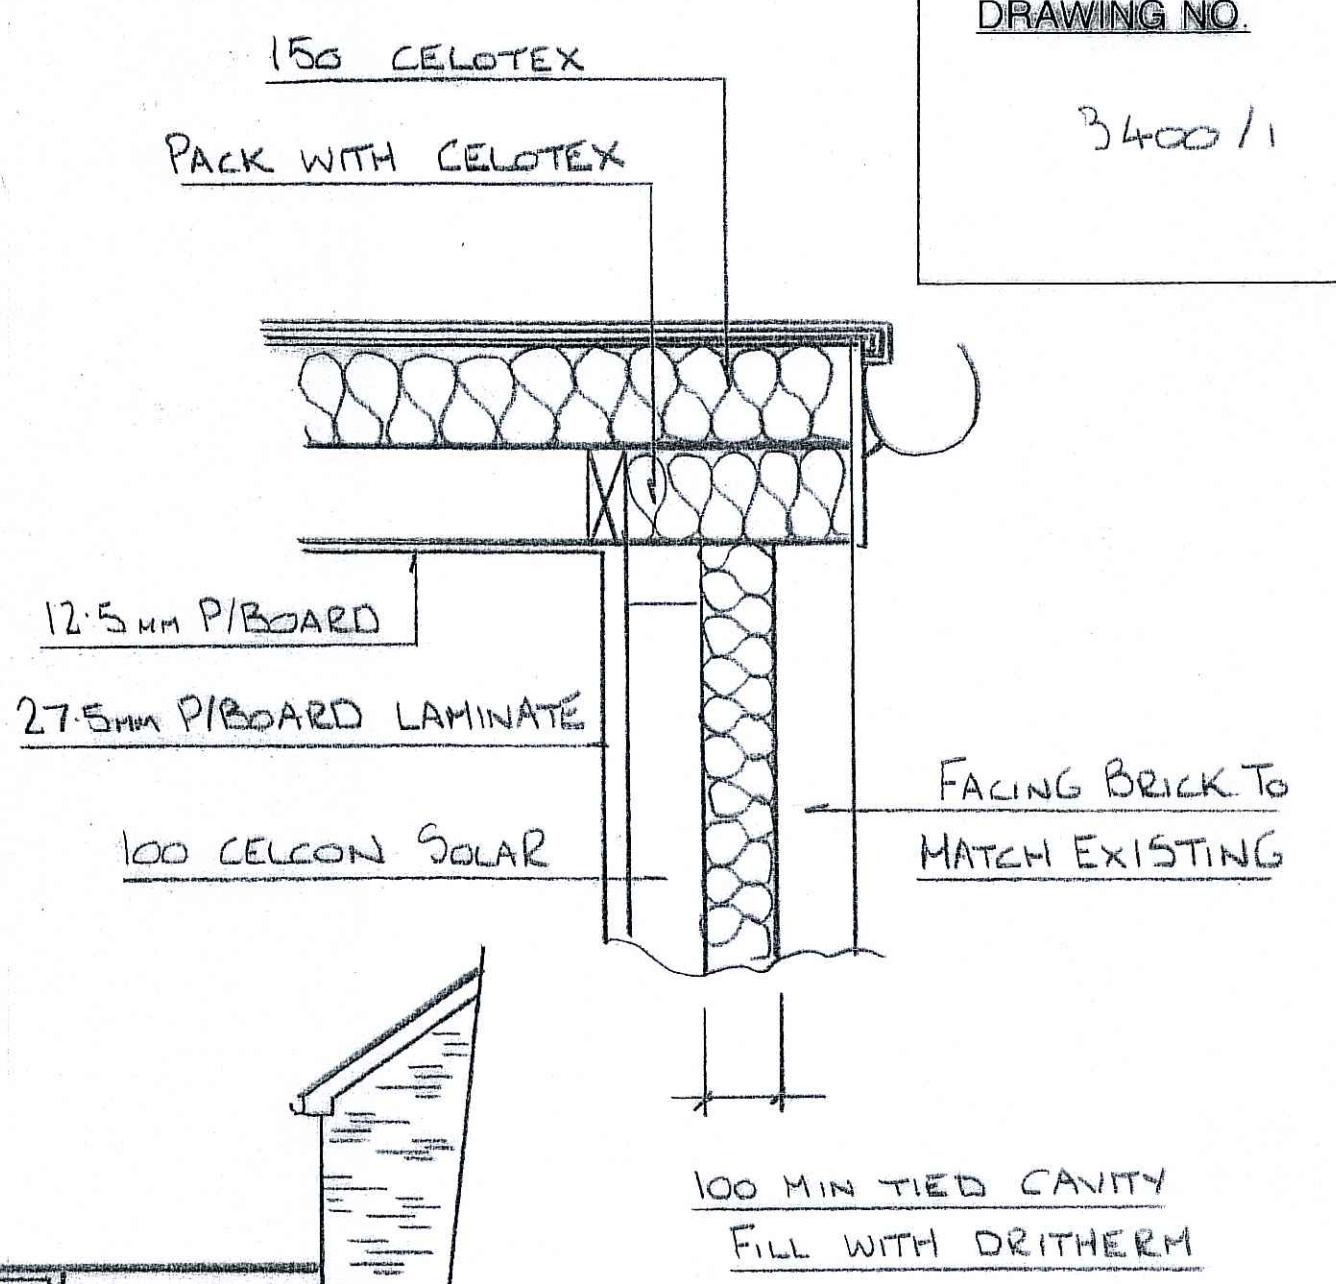 DRAWING NO.
3400/1
150 CELOTEX
PACK WITH CELOTEX
12.5MM P/BOARD
27.5MM P/BOARD LAMINATE
100 CELCON SOLAR
FACING BRICK TO
MATCH EXISTING
100 MIN TIED CAVITY
FILL WITH DRITHERM